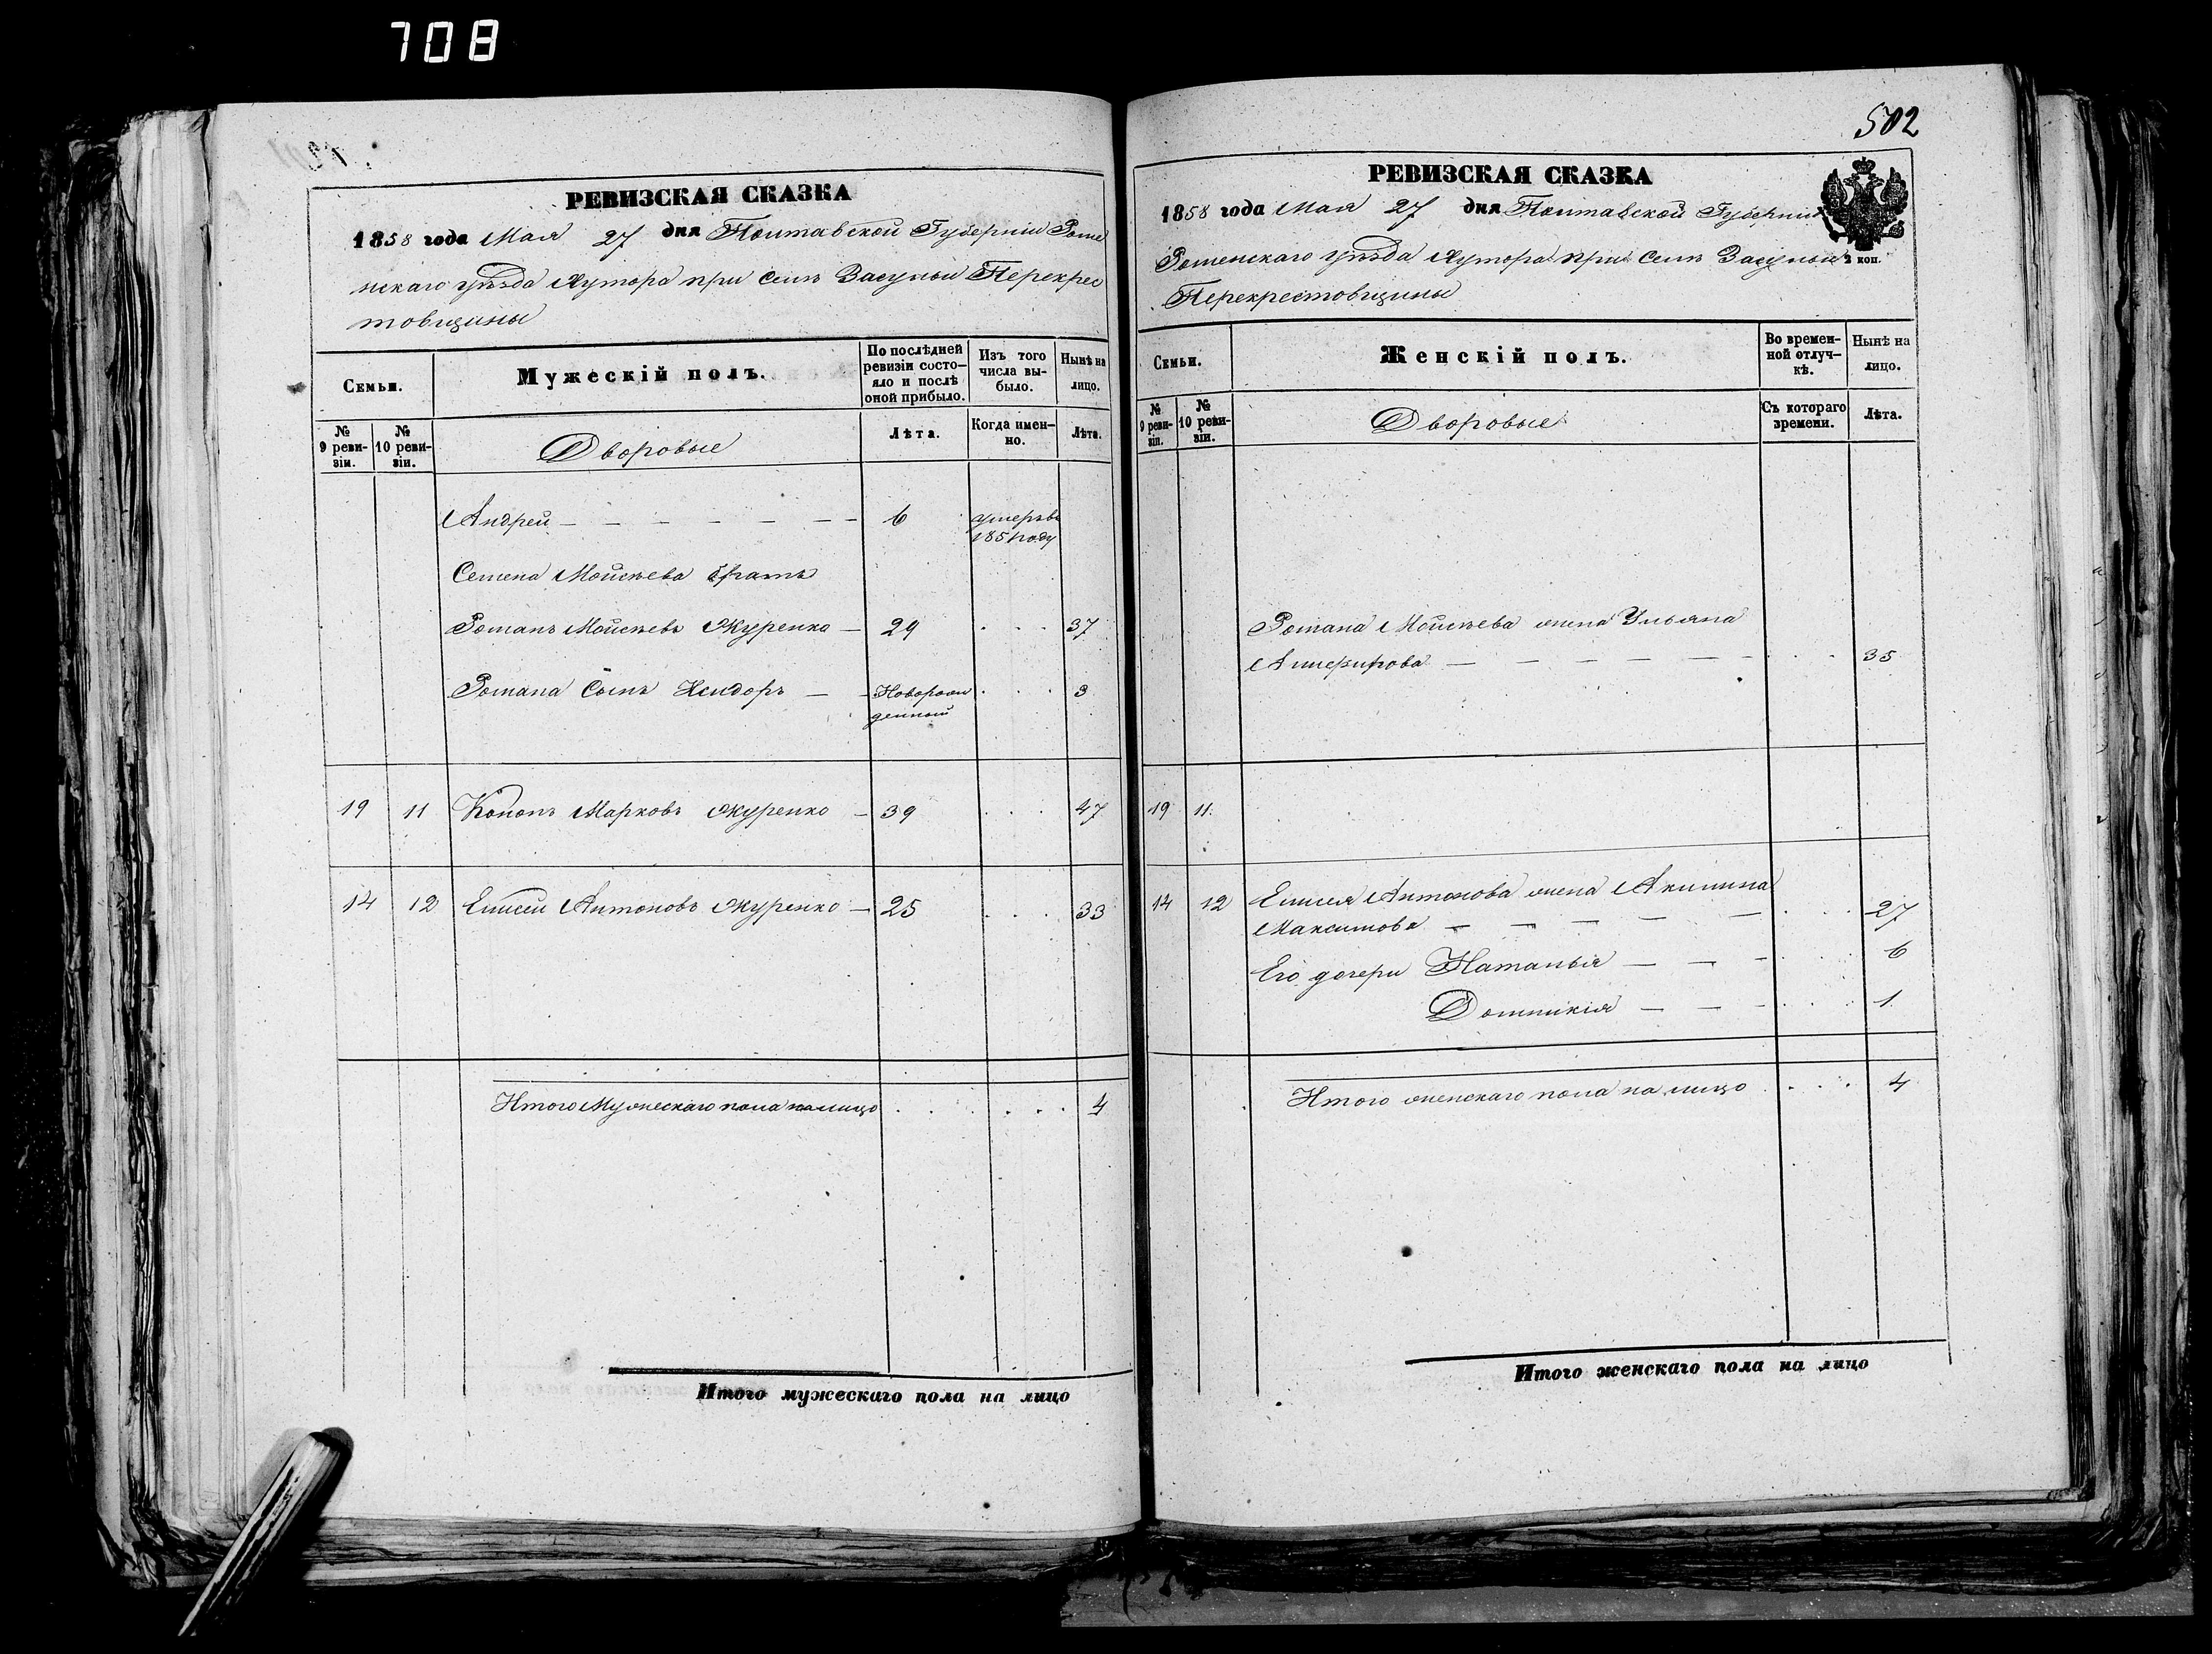 708
РЕВИЗСКАЯ СКАЗКА
1858 года Мая 27 дня Полтавской Губерніи Роме
нскаго уѣзда Хутора при селѣ Засульи Перекрес
товщины
Семьи.
Мужескій полъ.
По послѣдней ревизіи состо-
яло и послѣ оной прибыло.
Изъ того числа вы-
было.
Нынѣ на лицо.
№ 9 реви-
зіи.
№ 10 реви-
зіи.
Дворовые
Лѣта.
Когда имен-
но.
Лѣта.
Андрей — — — — — — — 6 умеръ въ
1851 году
Семена Мойсѣева братъ
Романъ Мойсѣевъ Журенко — 29 . . . 37
Романа Сынъ — Новорож . . . 3
денный
19 11 Кононъ Марковъ Журенко — 39 . . . 47
14 12 Елисей Антоновъ Журенко — 25 . . . 33
Итого Мужескаго пола на лицо . . . . . . 4
Итого мужескаго пола на лицо
502
РЕВИЗСКАЯ СКАЗКА
2 коп.
1858 года Мая 27 дня Полтавской Губерніи
Роменскаго уѣзда Хутора при селѣ Засульи
Перекрестовщины
Семьи.
Женскій полъ.
Во времен-
ной отлуч-
кѣ.
Нынѣ на лицо.
№ 9 реви-
зіи.
№ 10 реви-
зіи.
Дворовые
Съ котораго времени.
Лѣта.
Романа Мойсѣева жена Ульяна
— — — — — — . . . 35
19 11.
14 12 Елисея Антонова жена Акилина
Максимова — — — — — . . . 27
Его дочери Наталья — — — . . . 6
Домникія — — — . . . 1.
Итого женскаго пола на лицо . . . . 4
Итого женскаго пола на лицо